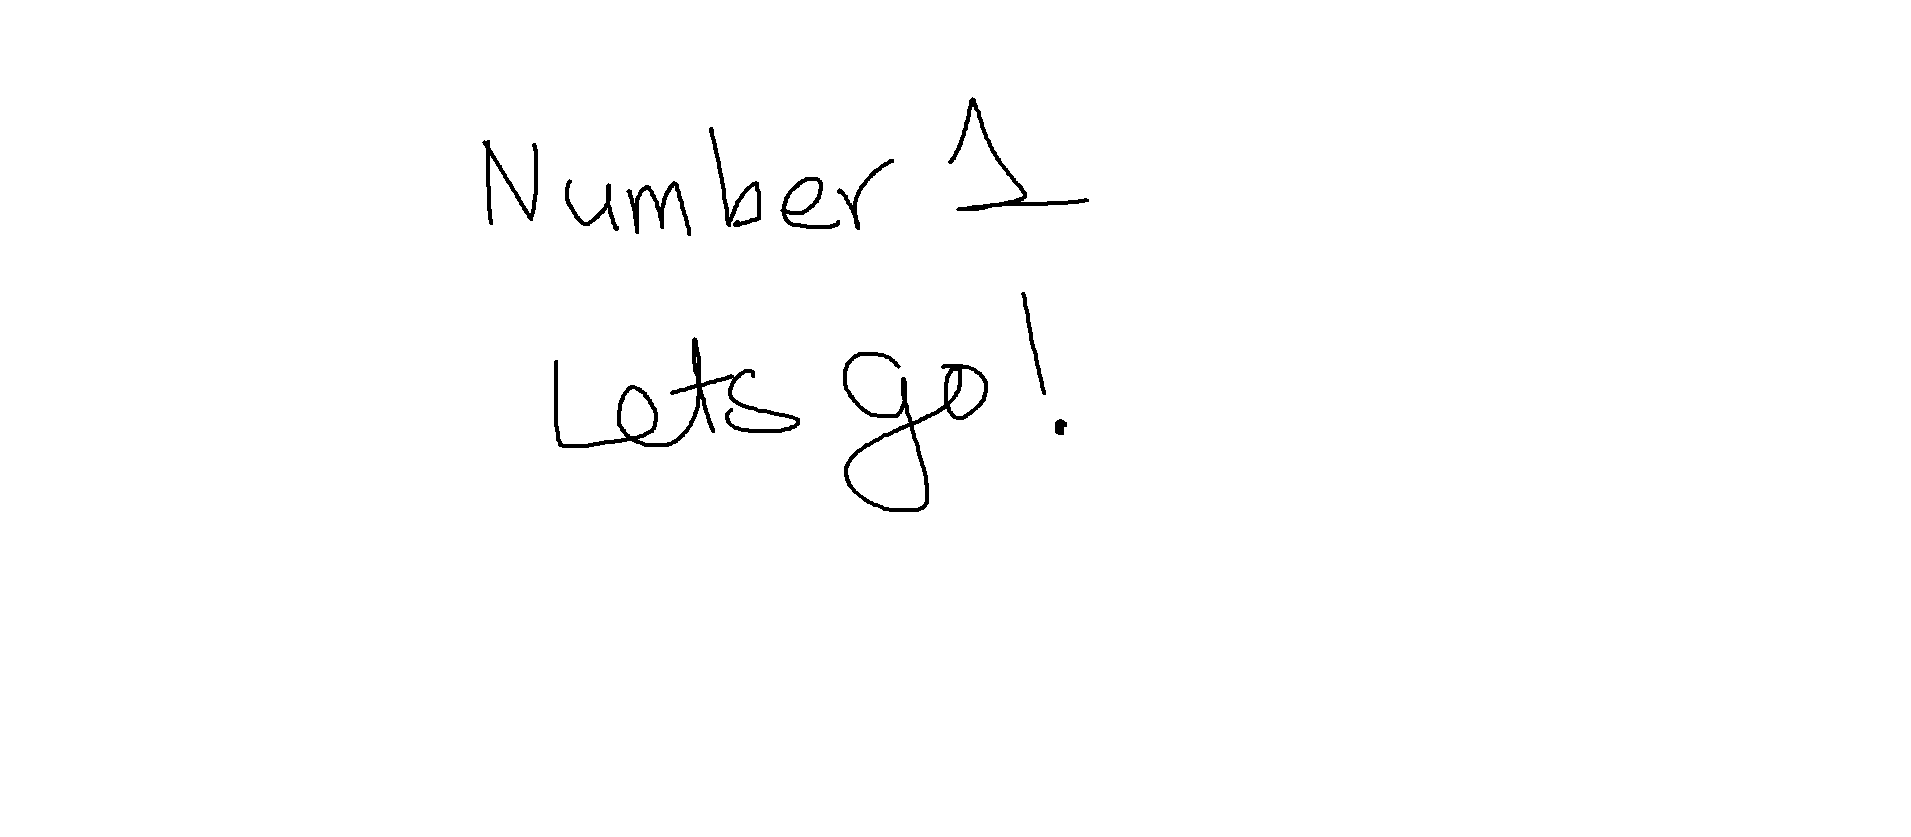 Number 1
Lets go!